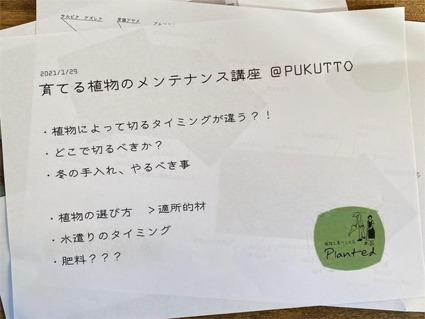 2021/1/29
育てる植物のメンテナンス講座 @PUKUTTO
・植物によって切るタイミングが違う?!
・どこで切るべきか?
・冬の手入れ、やるべき事
・植物の選び方 >適所的材
・水遣りのタイミング
・肥料???
Planted